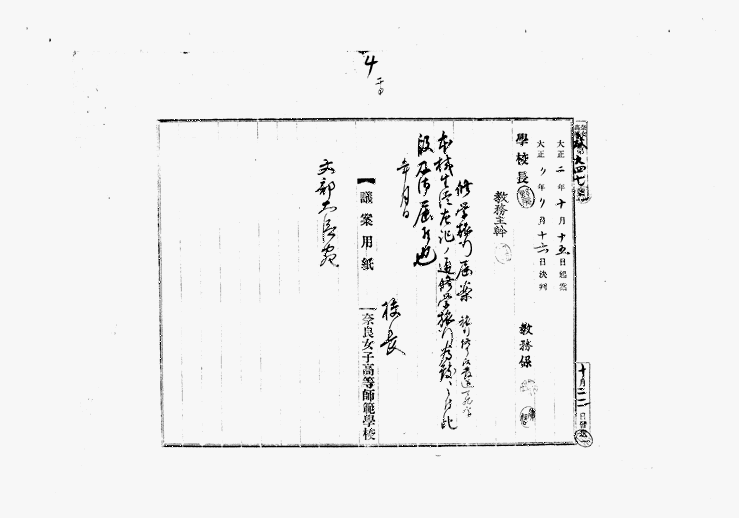 4
大正二年十月十五日起案
大正〃年〃月十六日決判
學校長
教務主幹
教務係
修学旅行届案
本校生徒左記ノ通修学旅行為致候ニ付此
段及御届候也
年月日
校長
文部大臣宛
議案用紙
奈良女子高等師範學校
第九四七號
十月二二日發送